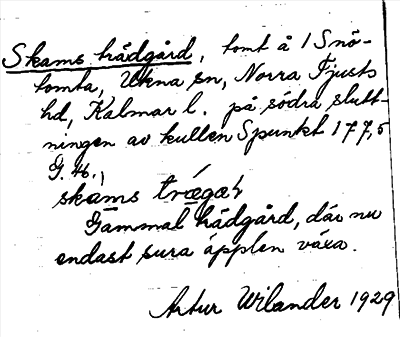 Skams trädgård, tomt å 1 Snö-
tomta, Ukna sn, Norra Tjusts
hd, Kalmar l. på södra slutt-
ningen av kullen S punkt 177,5
G. K.,
skams trǽgaɫ
Gammal trädgård, där nu
endast sura äpplen växa.
Artur Wilander 1929